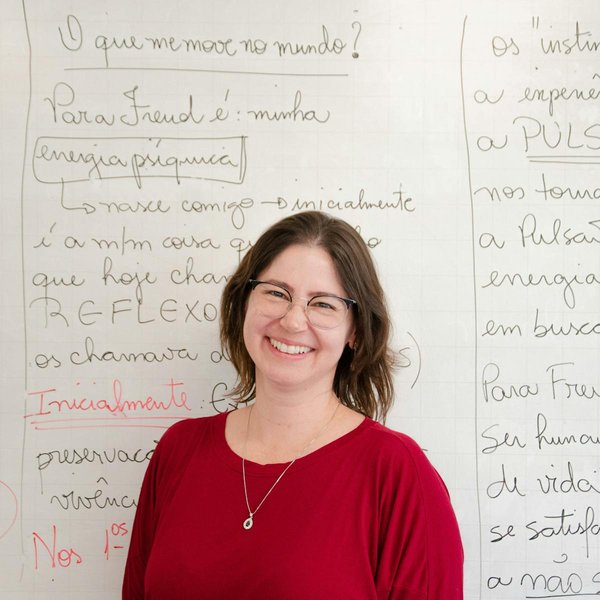 O que me move no mundo?
Para Freud é: minha
energia psíquica
↳ nasce comigo → inicialmente
é a m/m coisa
que hoje
REFLEXO
os chamava
Inicialmente:
vivênc
Nos 1ºs
os "instin
a experiê
a PULS
nos torna
a Pulsã
energia
em busca
Para Freu
Ser human
de vida
se satisfa
a não s